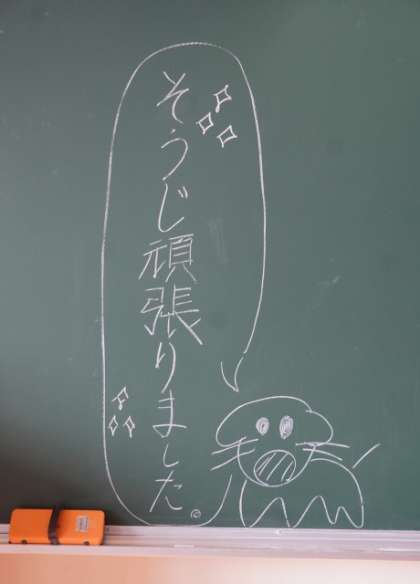 そうじ頑張りました。